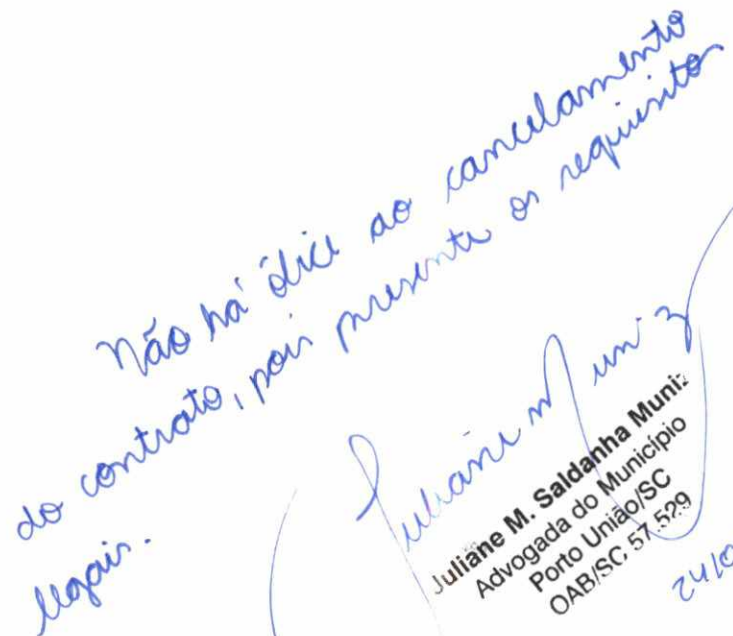 Não há óbice ao cancelamento
do contrato, pois presente os requisitos
legais.
Juliane M Muniz
Juliane M. Saldanha Muniz
Advogada do Município
Porto União/SC
OAB/SC 57.529